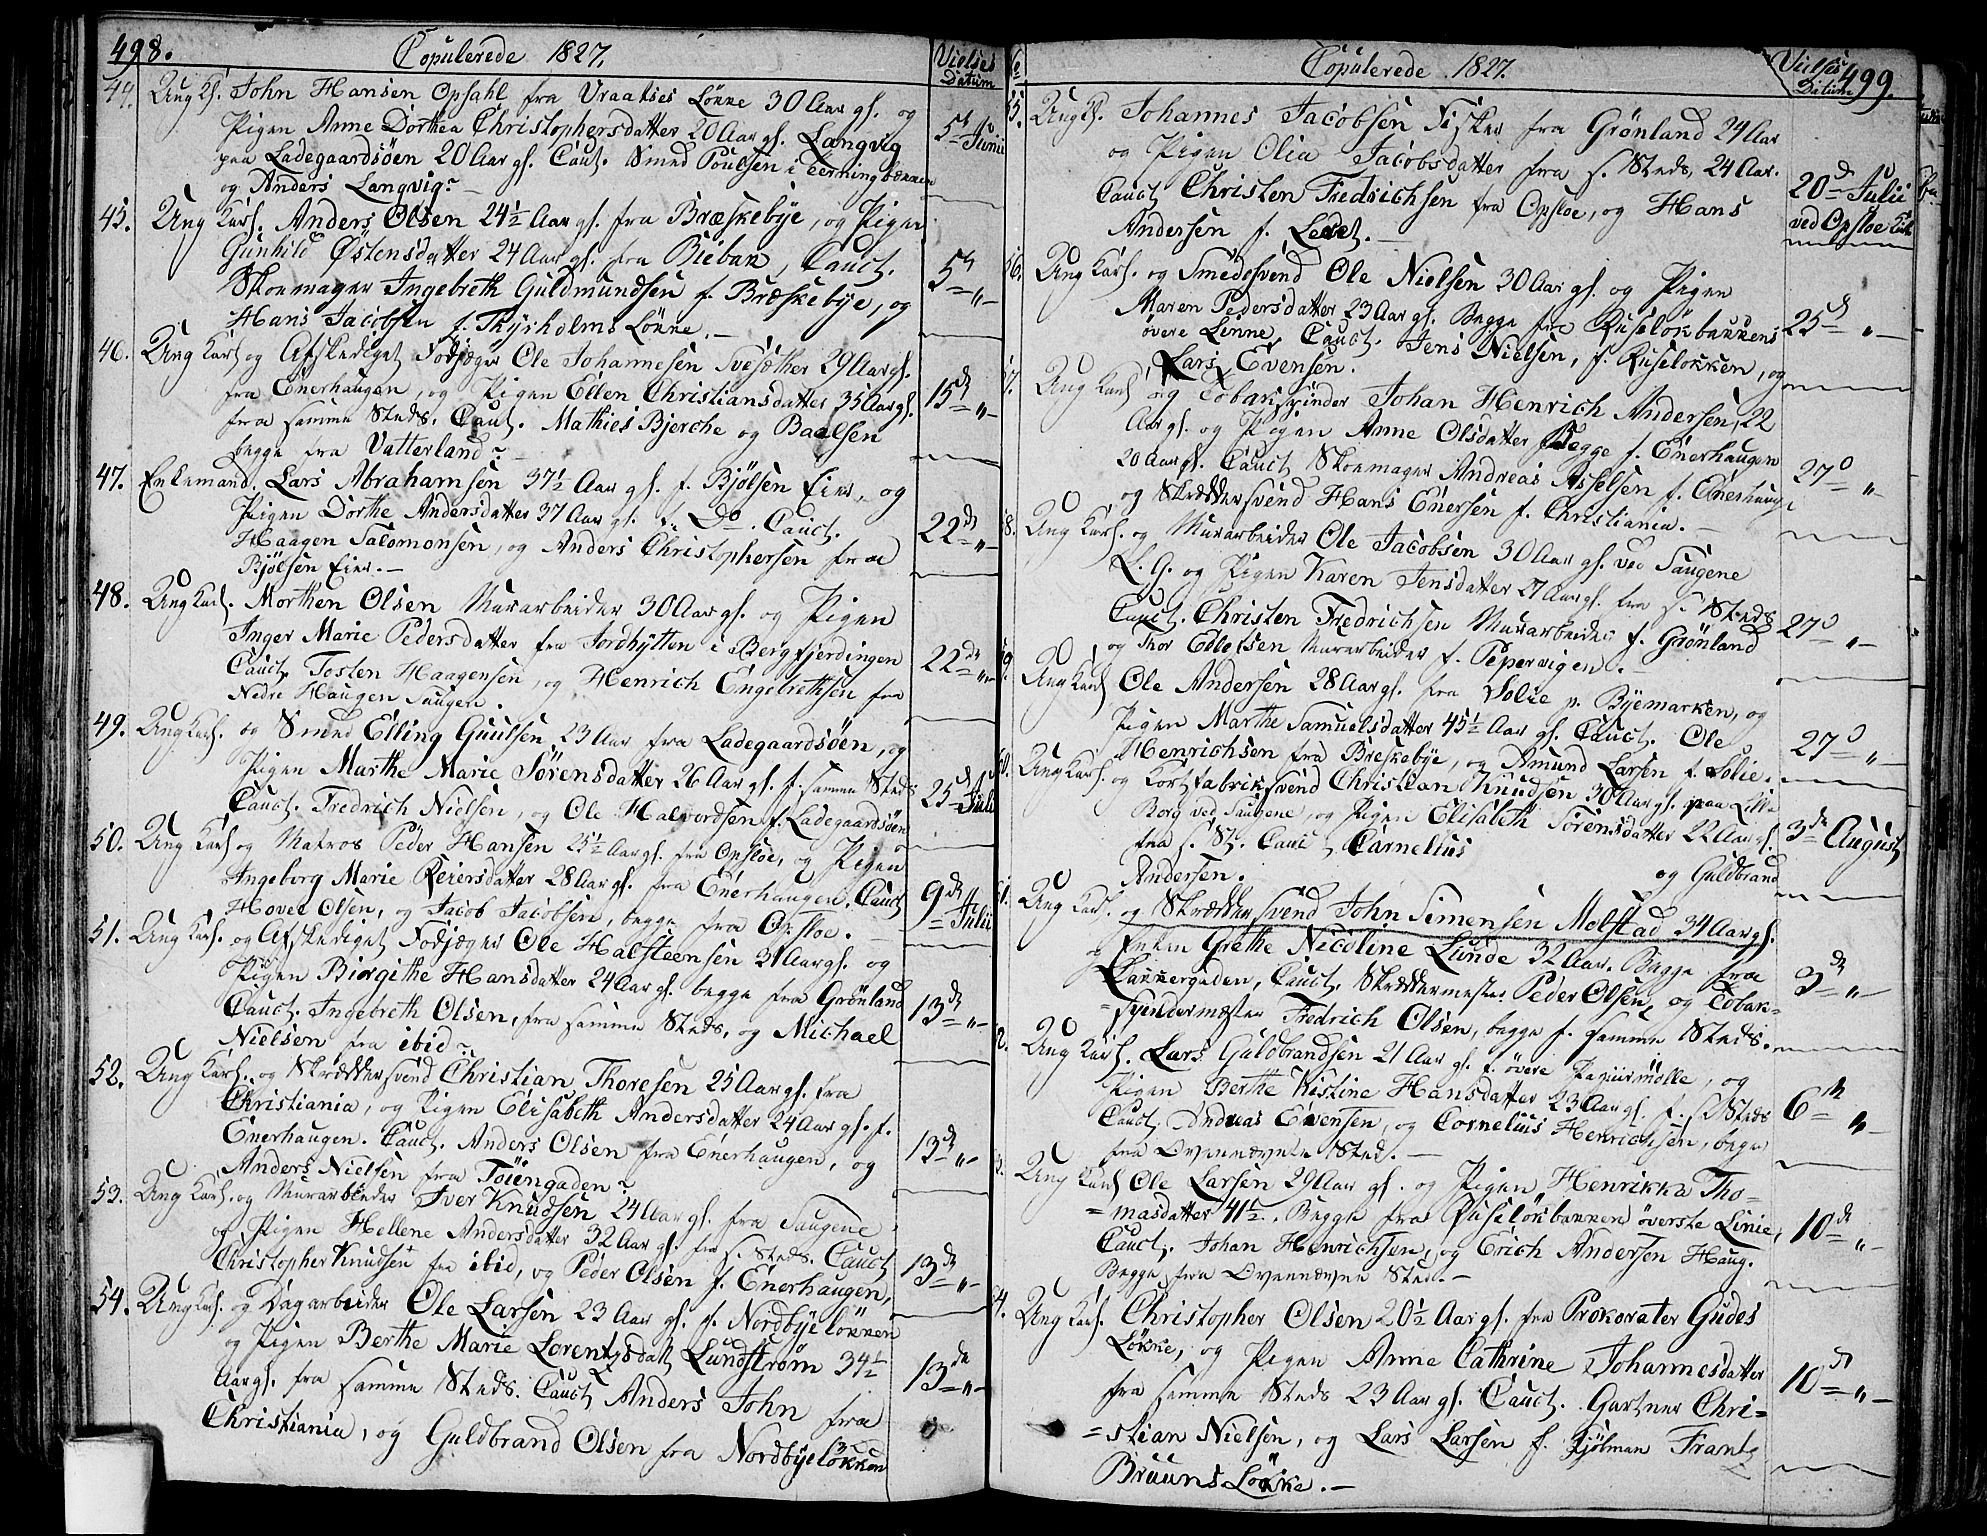 498. Copulerede 1827. Vielses Datum
44. Ung K. John Hansen Opsahl fra Vraatses Lønne 30 Aar gl. og
Pigen Anne Dorthea Christophersdatter 20 Aar gl. Langvig 5te Junii
paa Ladegaardsöen 20 Aar gl. Cauct. Smed Poulsen i
og Anders Langvig.
45. Ung Karl. Anders Olsen 24½ Aar gl. fra Bræskebye, og Pigen
Gunhild Østensdatter 24 Aar gl. fra Bieban, Cauct. 5te "
Skoemager Ingebreth Guldmundsen f. Bræskebye, og
Hans Jacobsen f. Thyrholms Lønne.
46. Ung Karl og Afskediget Fodjæger Ole Johannesen Svesæther 29 Aar gl.
fra Enerhaugen, og Pigen Ellen Christiansdatter 35 Aar gl. 15de "
fra samme Steds. Cauct. Mathies Bjerche og Baalsen
begge fra Vatterland.
47. Enkemand. Lars Abrahamsen 37½ Aar gl. f. Bjølsen Eier, og
Pigen Dorthe Andersdatter 37 Aar gl. f. Do. Cauct. 22de "
Haagen Salomonsen, og Anders Christophersen fra
Bjølsen Eier.
48. Ung Karl. Morthen Olsen Murarbeider 30 Aar gl. og Pigen
Inger Marie Pedersdatter fra Jordhytten i Bergfjerdingen
Cauct. Tosten Haagensen, og Henrich Engebrethsen fra 22de "
Nedre Haugen Saugen.
49. Ung Karl. og Smed Elling Guulsen 23 Aar fra Ladegaardsöen, og
Pigen Marthe Marie Sørensdatter 26 Aar gl. f. samme Steds 25de Juli
Cauct. Fredrich Nielsen, og Ole Halvordsen f. Ladegaardsöen
50. Ung Karl og Matros Peder Hansen 25½ Aar gl. fra Opsloe, og Pigen
Ingeborg Marie Reiersdatter 28 Aar gl. fra Enerhaugen. Cauct 9de Julii
Hover Olsen, og Jacob Jacobsen, begge fra Opsloe.
51. Ung Karl. og Afskediget Fodjæger Ole Halsteensen 31 Aar gl. og
Pigen Birgithe Hansdatter 24 Aar gl. begge fra Grönland
Cauct. Ingebreth Olsen, fra samme Steds, og Michael 13de "
Nielsen fra ibid.
52. Ung Karl. og Skræddersvend Christian Thoresen 25 Aar gl. fra
Christiania, og Pigen Elisabeth Andersdatter 24 Aar gl. f.
Enerhaugen. Cauct. Anders Olsen fra Enerhaugen, og 13de "
Anders Nielsen fra Töiengaden.
53. Ung Karl. og Murarbeider Iver Knudsen 24 Aar gl. fra Saugene
og Pigen Hellene Andersdatter 32 Aar gl. fra s. Steds. Cauct
Christopher Knudsen fra ibid, og Peder Olsen f. Enerhaugen. 13de "
54. Ung Karl. og Dagarbeider Ole Larsen 23 Aar gl. f. Nordbyelökken
og Pigen Berthe Marie Lorentzsdatt Lundström 34½
Aar gl. fra samme Steds. Cauct Anders John fra 13de "
Christiania, og Guldbrand Olsen fra Nordbyelökken
Copulerede 1827. Vielses Datum 499.
55. Ung K. Johannes Jacobsen Fisker fra Grönland 24 Aar
og Pigen Olia Jacobsdatter fra s. Steds, 24 Aar.
Cauct. Christen Fredrichsen fra Opsloe, og Hans 20de Julii
Andersen f. Ledet. ved Opsloe
56. Ung Karl. og Smedesvend Ole Nielsen 30 Aar gl. og Pigen
Maren Pedersdatter 23 Aar gl. Begge fra Ruselökbakkens 25de "
övere Linne, Cauct. Jens Nielsen, f. Ruselökken, og
Lars Evensen.
57. Ung Karl og Tobakspinder Johan Henrich Andersen, 22
Aar gl. og Pigen Anne Olsdatter Begge f. Enerhaugen
20 Aar gl. Cauct Skoemager Andreas Asselsen f. Enerhaug 27de "
og Skræddersvend Hans Enersen f. Christiania.
58. Ung Karl. og Murarbeider Ole Jacobsen 30 Aar gl. ved Saugene
L. G. og Pigen Karen Jensdatter 27 Aar gl. fra s. Steds
Cauct. Christen Fredrichsen Murarbeider f. Grönland 27de "
og Thor Edlefsen Murarbeider f. Pepervigen.
59. Ung Karl Ole Andersen 28 Aar gl. fra Solie p. Byemarken, og
Pigen Marthe Samuelsdatter 45½ Aar gl. Cauct. Ole 27de "
Henrichsen fra Breskebye, og Amund Larsen f. Solie.
60. Ung Karl. og Kortfabriksvend Christian Knudsen 30 Aar gl. paa Lille
Borg ved Saugene, og Pigen Elisabeth Sörensdatter 22 Aar gl. 3de August
fra s. St. Cauct Carnelius
Andersen. og Guldbrand
61. Ung Karl. og Skræddersvend John Simensen Molstad 34 Aar gl.
og Enken Grethe Nicoline Lunde 32 Aar. Begge fra
Lakkergaden, Cauct. Skræddermester Peder Olsen, og Tobak= 3de "
=spindermester Fredrich Olsen, begge f. samme Steds.
2. Ung Karl. Lars Guldbrandsen 21 Aar gl. f. övere Papiirmölle, og
Pigen Berthe Kistine Hansdatter 23 Aar gl. f. s. Steds 6te "
Cauct. Andreas Evensen, og Cornelius Henrichsen, begge
fra Ovennævnte Sted.
3. Ung Karl Ole Larsen 29 Aar gl. og Pigen Henrikka Tho=
=masdatter 41½. Begge fra Ruselökbakken överste Linie, 10de "
Cauct. Johan Henrichsen, og Erich Andersen Haug.
Begge fra Ovennævnte Sted.
4. Ung Karl. Christopher Olsen 20½ Aar gl. fra Prokorater Gudes
Løkke, og Pigen Anne Cathrine Johannesdatter
fra samme Steds 23 Aar gl. Cauct. Gartner Chri= 10de "
=stian Nielsen, og Lars Larsen f. Kjöbman Frantz
Bruuns Løkke.